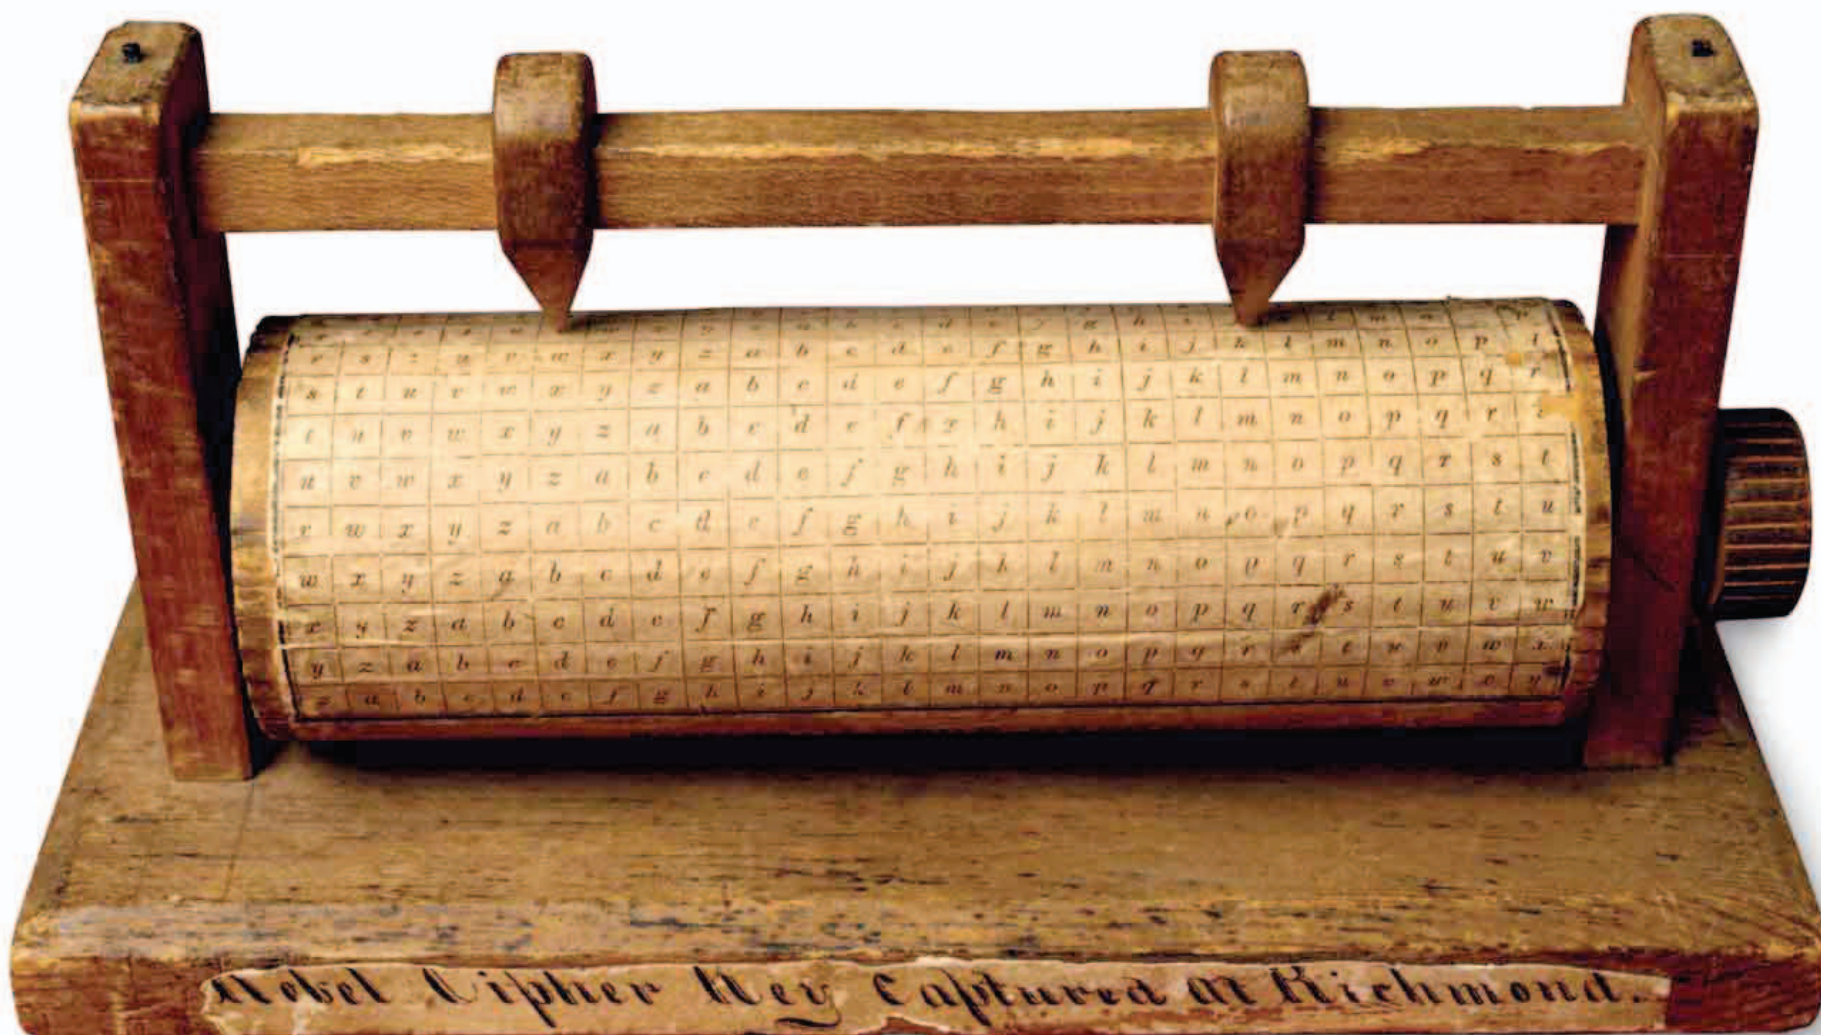 r s t u v w x y z a b c d e f g h i j k l m n o p
s t u v w x y z a b c d e f g h i j k l m n o p q r
t u v w x y z a b c d e f g h i j k l m n o p q r s
u v w x y z a b c d e f g h i j k l m n o p q r s t
v w x y z a b c d e f g h i j k l m n o p q r s t u
w x y z a b c d e f g h i j k l m n o p q r s t u v
x y z a b c d e f g h i j k l m n o p q r s t u v w
y z a b c d e f g h i j k l m n o p q r s t u v w x
z a b c d e f g h i j k l m n o p q r s t u v w x y
Rebel Cipher Key Captured at Richmond.